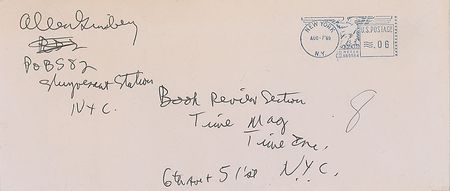 Allen Ginsberg
P O B 582
Stuyvesant Station
NYC.
NEW YORK
AUG-7'69
N.Y.
U.S. POSTAGE
.06
Book Review Section
Time Mag
Time Inc.
6th Ave + 51'st N.Y.C.
8